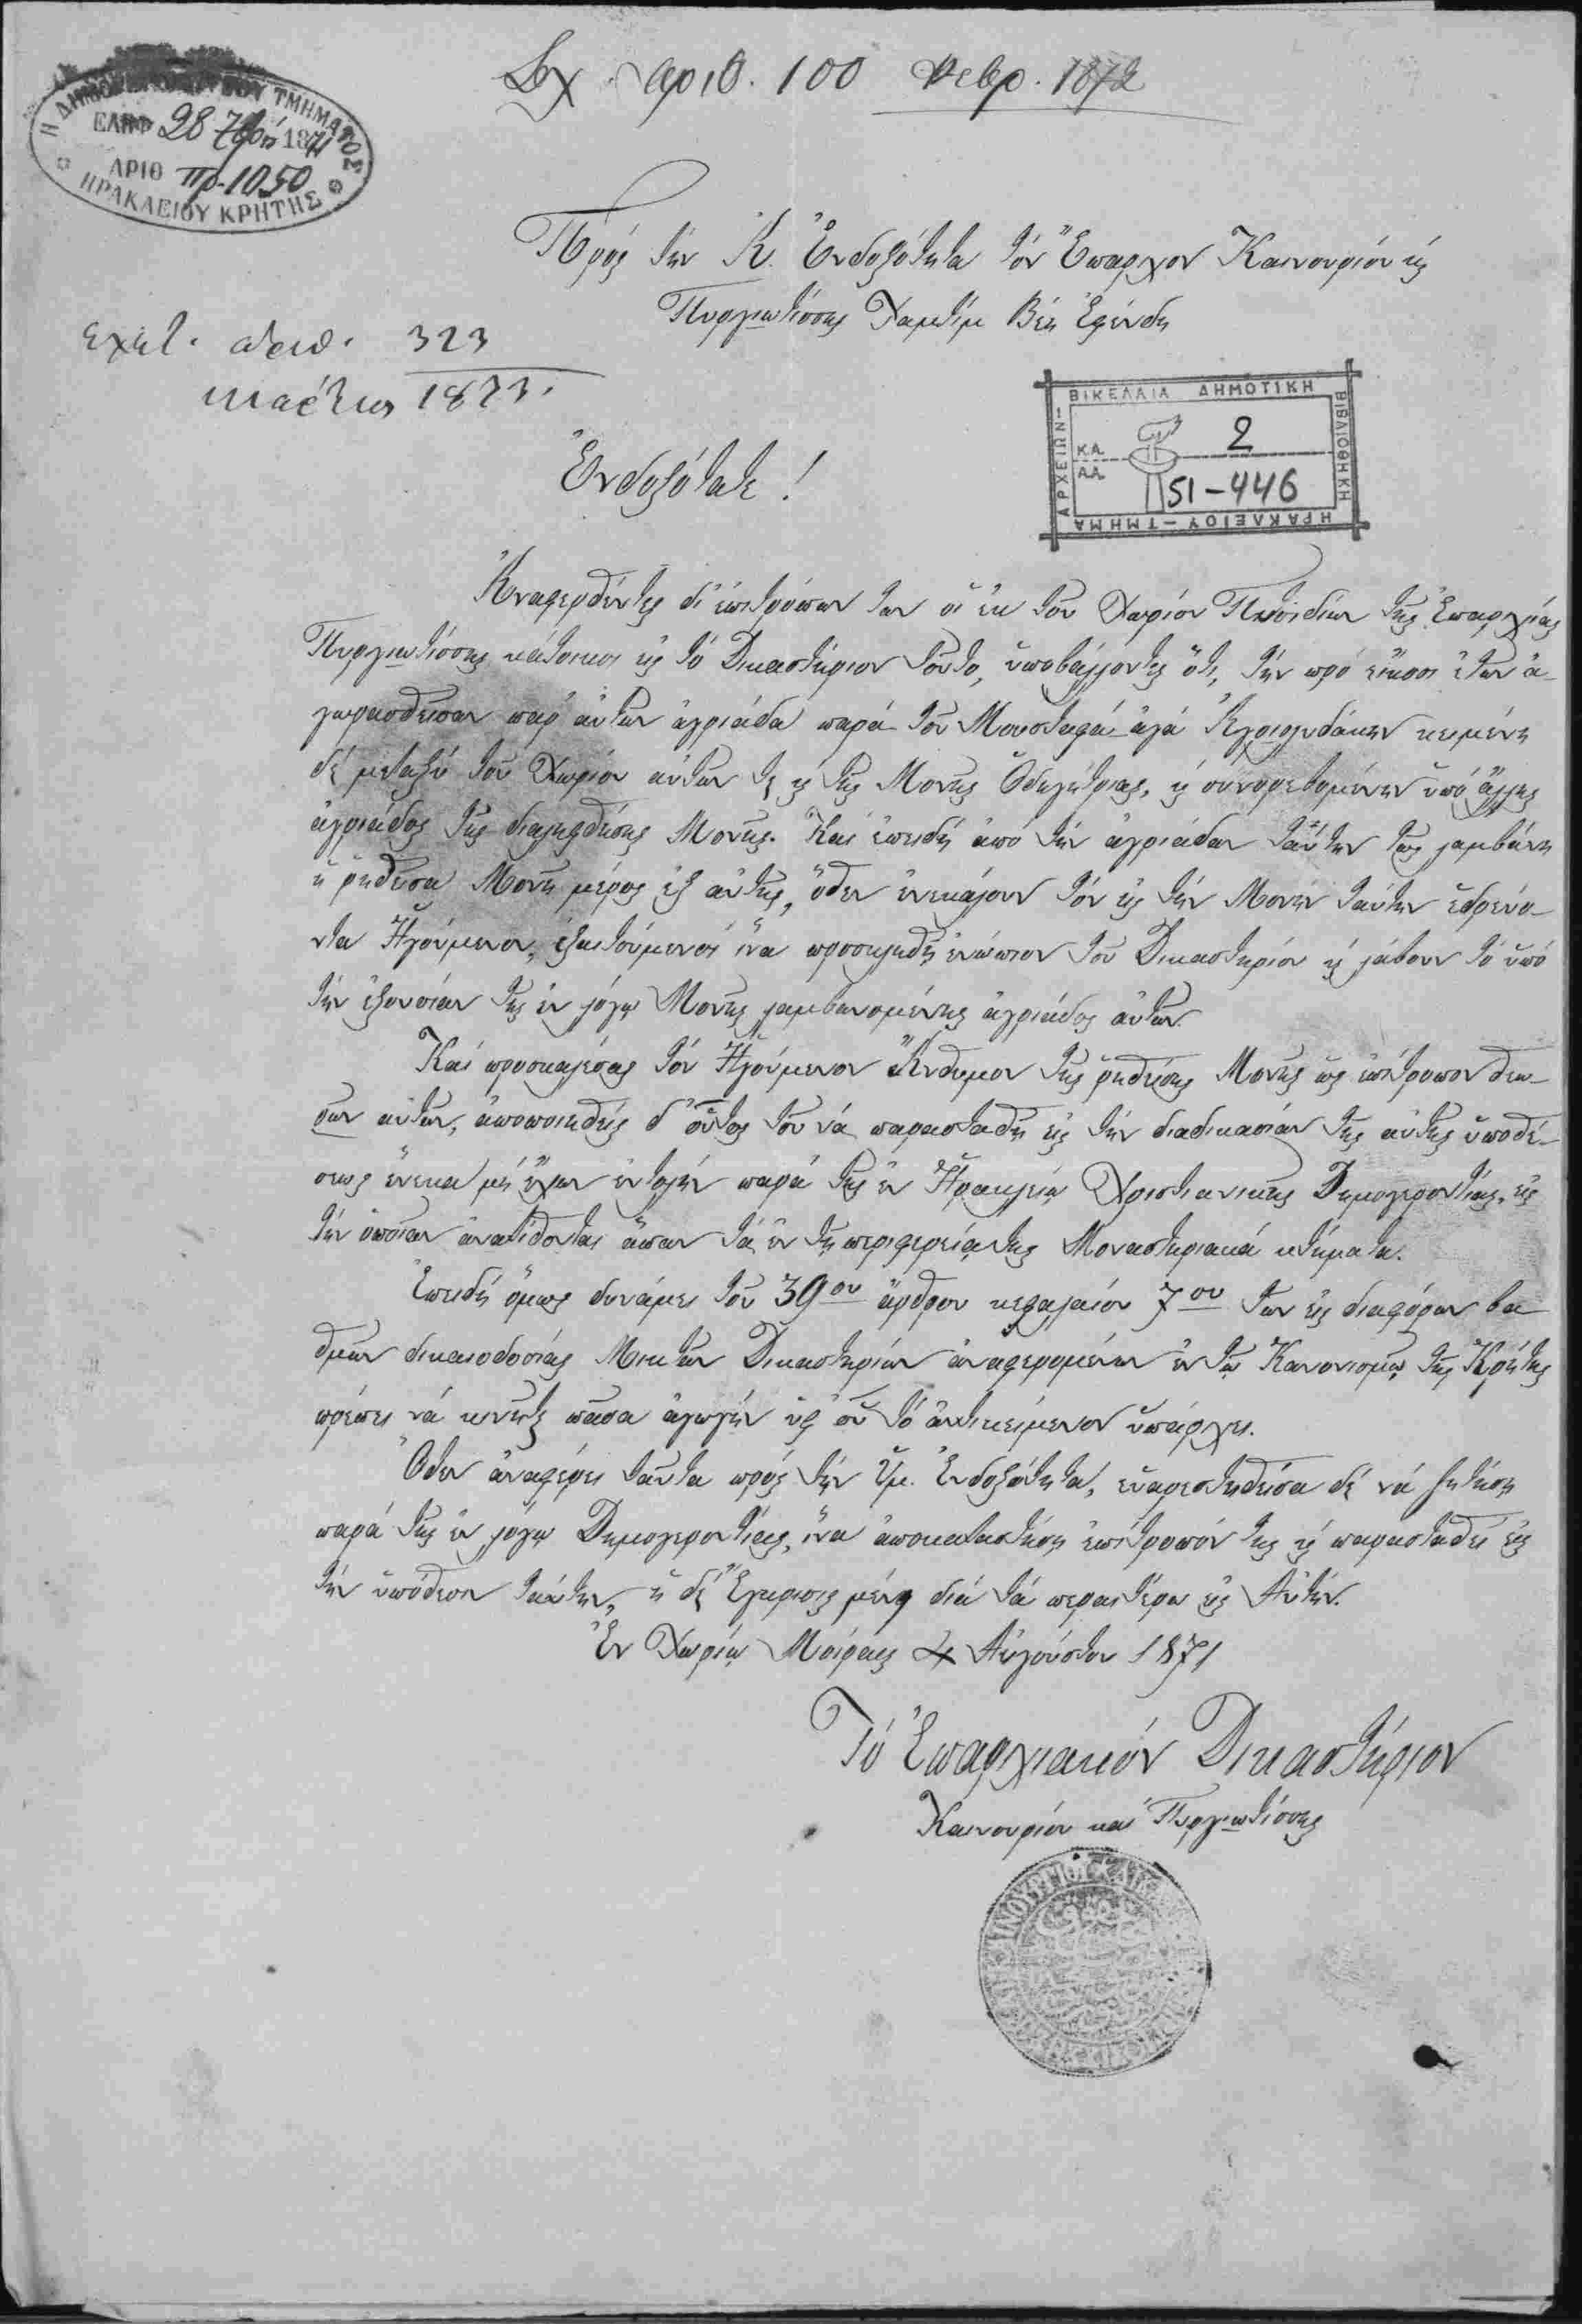 Σχ. αριθ. 100 Φεβρ. 1872
Η ΔΗΜΟΓΕΡΟΝΤΙΑ ΤΟΥ ΤΜΗΜΑΤΟΣ
ΕΛΗΦ 28 7βρίου 1871
ΑΡΙΘ Πρ. 1050
ΗΡΑΚΛΕΙΟΥ ΚΡΗΤΗΣ
Πρός τήν Α. Ἐνδοξότητα τόν Ἔπαρχον Καινουρίου καὶ
Πυργιωτίσσης Βέη Ἐφένδη
σχετ. αριθ. 323
μαρτίου 1873.
ΒΙΚΕΛΑΙΑ ΔΗΜΟΤΙΚΗ
ΒΙΒΛΙΟΘΗΚΗ
ΗΡΑΚΛΕΙΟΥ - ΤΜΗΜΑ
ΑΡΧΕΙΩΝ
Κ.Α. 2
Α.Α. 51-446
Ἐνδοξότατε!
Ἀναφερθέντες δι' ἐπιτρόπων των οἱ ἐκ τοῦ Χωρίου Πετσιδίων τῆς Ἐπαρχίας
Πυργιωτίσσης κάτοικοι εἰς τό Δικαστήριον τοῦτο, ὑποβάλλοντες ὅτι, τήν πρό εἴκοσι ἐτῶν ἀ-
γωρασθεῖσαν παρ' αὐτῶν ἀγριάδα παρά τοῦ Μουσταφᾶ ἀγᾶ κειμένη
δέ μεταξύ τοῦ Χωρίου αὐτῶν τε καὶ τῆς Μονῆς Ὁδηγητρίας, καὶ συνορευομένην ὑπό ἄλλης
ἀγριάδος τῆς διαληφθείσης Μονῆς. Καί ἐπειδή ἀπό τήν ἀγριάδαν ταύτην τούς λαμβάνει
ἡ ῥηθεῖσα Μονή μέρος ἐξ αὐτῆς, ὅθεν ἐνεκάλουν τόν εἰς τήν Μονήν ταύτην ἑδρεύο-
ντα Ἡγούμενον, ἐξαιτούμενοι ἵνα προσκληθῇ ἐνώπιον τοῦ Δικαστηρίου καὶ λάβουν τό ὑπό
τήν ἐξουσίαν τῆς ἐν λόγῳ Μονῆς λαμβανομένης ἀγριάδος αὐτῶν.
Καί προσκαλέσας τόν Ἡγούμενον Ἄνθιμον τῆς ῥηθείσης Μονῆς ὡς ἐπίτροπον
αὐτῶν, ἀποποιηθείς δ' οὗτος τοῦ νά παρασταθῇ εἰς τήν διαδικασίαν τῆς αὐτῆς ὑποθέ-
σεως ἕνεκα μή ἔχων ἐντολήν παρά τῆς ἐν Ἡρακλείῳ Χριστιανικῆς Δημογεροντίας, εἰς
τήν ὁποίαν ἀνατίθονται ἅπαν τά ἐν τῇ περιφερείᾳ της Μοναστηριακά κτήματα.
Ἐπειδή ὅμως δυνάμει τοῦ 39ου ἄρθρου κεφαλαίου 7ου τῶν εἰς διαφόρων βα-
θμῶν δικαιοδοσίας Μικτῶν Δικαστηρίων ἀναφερομένων ἐν τῷ Κανονισμῷ τῆς Κρήτης
πρέπει νά πᾶσα ἀγωγήν ὑφ' οὗ τό ἀντικείμενον ὑπάρχει.
Ὅθεν ἀναφέρει ταῦτα πρός τήν Ὑμ. Ἐνδοξότητα, εὐαρεστηθεῖσα δέ νά ζητήσῃ
παρά τῆς ἐν λόγῳ Δημογεροντίας, ἵνα ἀποκαταστήσῃ ἐπίτροπόν της καὶ παρασταθεῖ εἰς
τήν ὑπόθεσιν ταύτην, ἡ δέ ἔγκρισις μένῃ διά τά περαιτέρω εἰς Αὐτήν.
Ἐν Χωρίῳ Μοίραις 4 Αὐγούστου 1871
Τό Ἐπαρχιακόν Δικαστήριον
Καινουρίου καί Πυργιωτίσσης